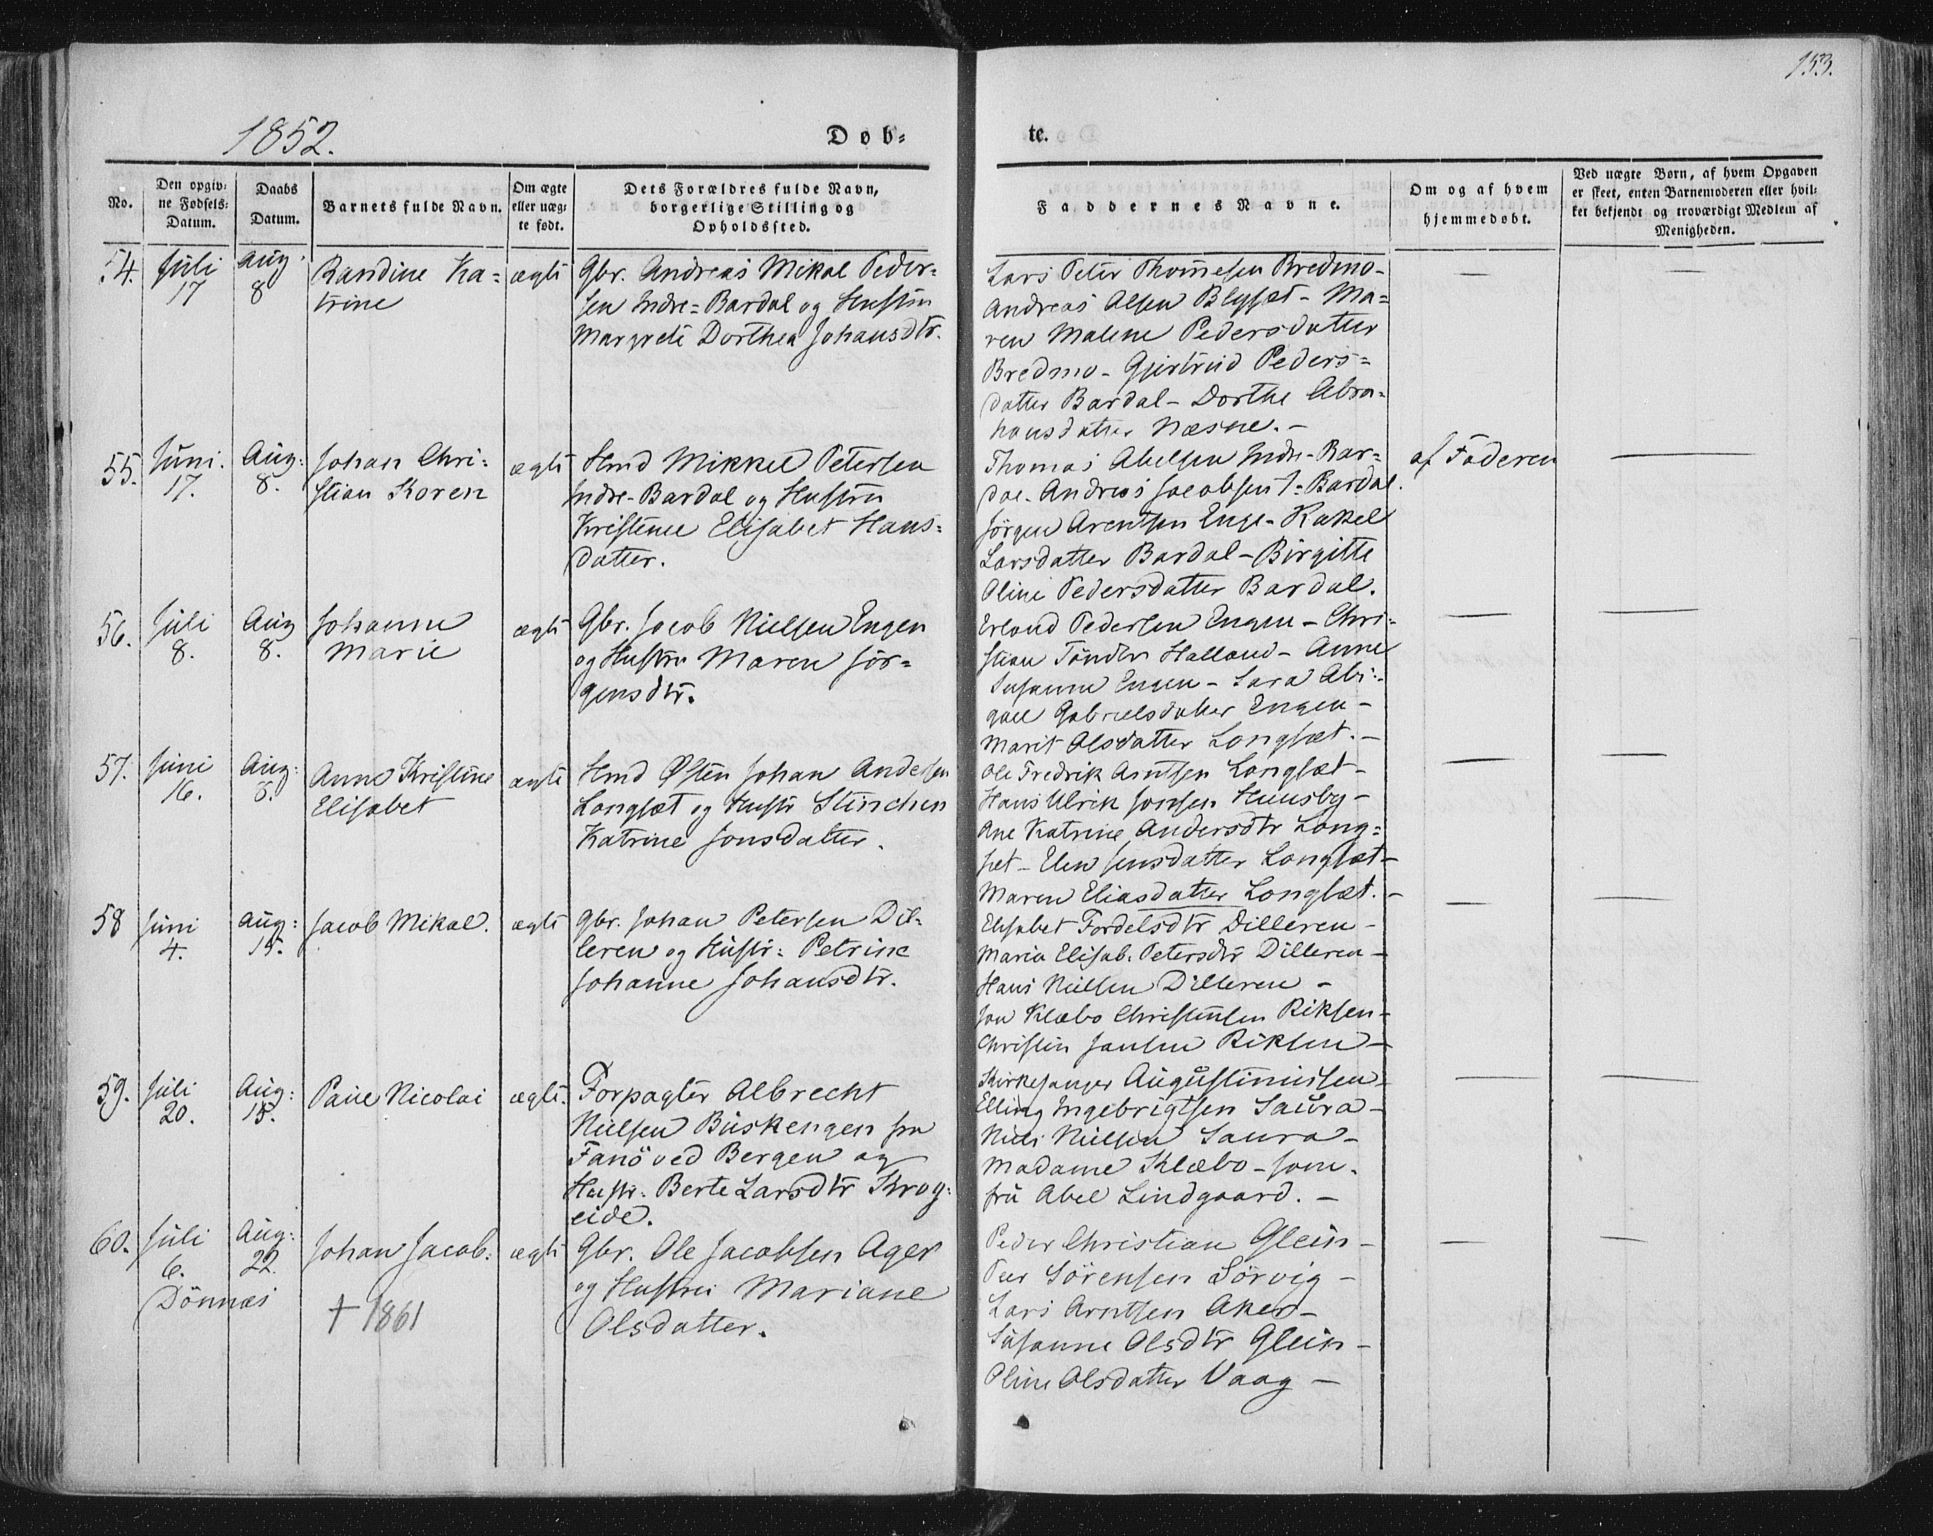 153.
1852.
Døb-
te.
No.
Den opgiv-
ne Fødsels-
Datum.
Daabs
Datum.
Barnets fulde Navn.
Om ægte
eller uæg-
te født.
Dets Forældres fulde Navn,
borgerlige Stilling og
Opholdssted.
Faddernes Navne.
Om og af hvem
hjemmedøbt.
Ved uægte Børn, af hvem Opgaven
er skeet, enten Barnemoderen eller hvil-
ket bekjendt og troværdigt Medlem af
Menigheden.
54.
Juli
17
Aug.
8
Randine Ka-
trine
ægte
Gbr. Andreas Mikal Peder-
sen Indre-Bardal og Hustru
Margrete Dorthea Johansdtr.
Lars Peter Thomesen Bredmo-
Andreas Olsen Blysæt - Ma-
ren Malene Pedersdatter
Bredmo - Gjertrud Peders-
datter Bardal - Dorthe Abra-
hamsdatter Næsne. -
55.
Juni.
17.
Aug:
8.
Johan Chri-
stian Koren
ægte
Hmd Mikkel Petersen
Indre-Bardal og Hustru
Kristine Elisabet Hans-
datter.
Thomas Abelsen Indre-Bar-
dal - Andreas Jacobsen I-Bardal.
Jørgen Arentsen Enge - Rakel
Larsdatter Bardal - Birgitte
Oline Pedersdatter Bardal.
af Faderen
56.
Juli
8.
Aug
8.
Johanne
Marie
ægte
Gbr. Jacob Nielsen Engen
og Hustru Maren Jør-
gensdtr.
Erland Pedersen Engen - Chri-
stian Tønder Halland - Anne
Susanne Engen - Sara Abi-
gael Gabrielsdatter Engen -
Marit Olsdatter Langsæt. -
57.
Juni
16.
Aug:
8.
Anne Kristine
Elisabet
ægte
Hmd Østen Johan Andersen
Langsæt og Hustr Stinchen
Katrine Jonsdatter.
Ole Fredrik Arntsen Langsæt -
Hans Ulrik Jonsen Huusby -
Ane Katrine Andersdtr Lang-
sæt - Elen Jensdatter Langsæt -
Maren Eliasdatter Langsæt. -
58
Juni
4.
Aug:
15.
Jacob Mikal.
ægte
Gbr. Johan Petersen Dil-
leren og Hustr: Petrine
Johanne Johansdtr.
Elisabet Fordelsdtr Dilleren -
Maria Elisab. Petersdtr Dilleren -
Hans Nielsen Dilleren -
Jon Klæbo Christensen Riksen -
Christin Jansen Riksen -
59.
Juli
20.
Aug:
15.
Paul Nicolai
ægte.
Forpagter Albrecht
Nielsen Buskengen fra
Fanö ved Bergen og
Hustr. Berte Larsdtr Krog-
eide.
Kirkesanger Augustinussen -
Elling Ingebrigtsen Saura -
Niels Nielsen Saura -
Madame Klæbo - Jom-
fru Abel Lindgaard. -
60.
Juli
6.
Dönnæs
Aug:
22.
Johan Jacob.
† 1861
ægte
Gbr. Ole Jacobsen Ager
og Hustru Mariane
Olsdatter.
Peder Christian Glein -
Peer Sørensen Sörvig -
Lars Arntsen Aker -
Susanne Olsdtr Glein -
Oline Olsdatter Vaag -